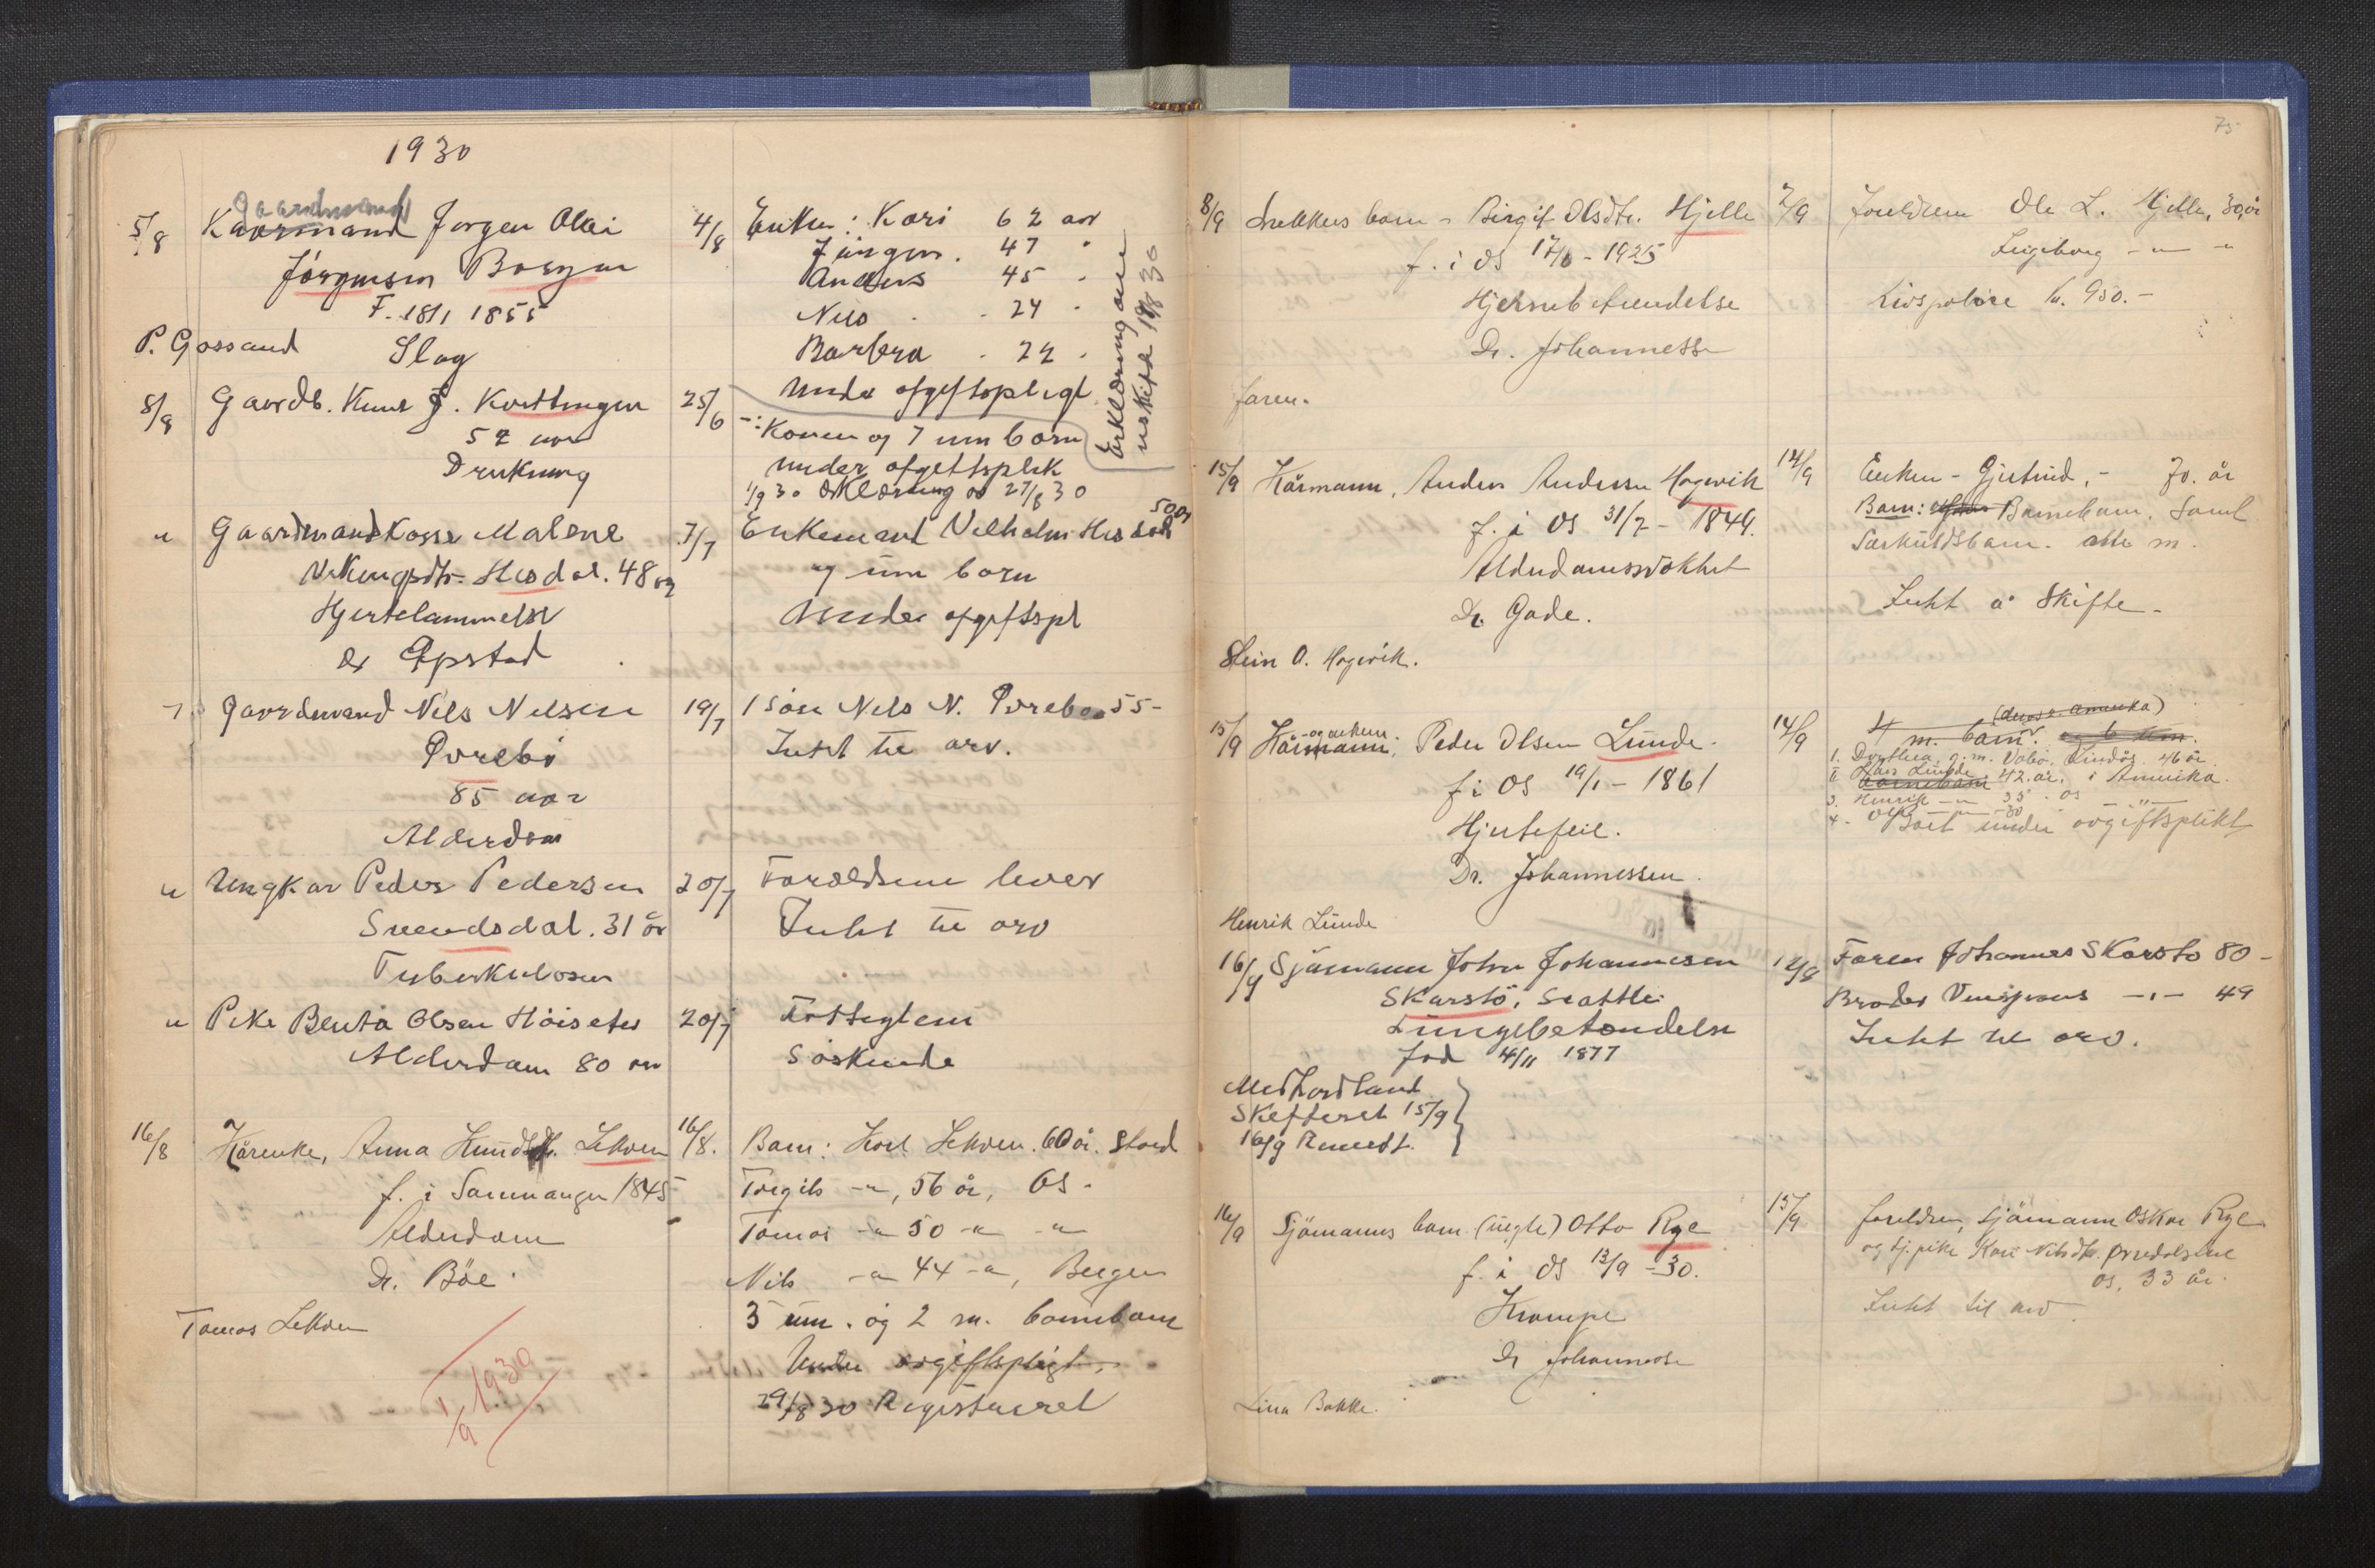 1930
Gaardmand
5/8 Kaarmand Jorgen Olai 4/8 Enken: Kari 62 aar
Jörgensen Bosyun Jürgen. 47 "
F. 18/1 1855 Anders 45 "
Nils 24 "
P. Gossand Slag Barbra 22 "
Under afgiftspligt
Erklæring om
uskifte 19/8 30
8/8 Gaardb. Knut J. 25/6 Konen og 7 um born
52 aar under afgiftsplik
Drukning 1/9 30 erklæring av 27/8 30
" Gaardmandskone Malene 7/7 Enkemand Vilhelm Hisdal 50 år
Hisdal. 48 år og um born
Hjertelammelse Under afgiftspl
dr Opstad
" Gaardmand Nils Nilsen 19/7 1 sön Nils N. 55 -
Intet til arv.
85 aar
Alderdom
" Ungkar Peder Pedersen 20/7 Foreldrene lever
Svendsdal. 31 år Intet til arv
Tuberkulosen
" Pike Benta Olsen Höiseter 20/7 Fattiglem
Alderdom 80 aar Söskende
16/8 Kårenke, Anna Lekven 16/8. Barn: Lekven. 60 år. Stord
f. i Samnanger 1845 Torgils -"-, 56 år, Os.
Alderdom Tomas -"- 50 -"- -"-
Dr. Böe. Nils -"- 44 -"-, Bergen
Tomas Lekven 3 um. og 2 m. barnebarn
Under avgiftspligt.
29/8 30 Registreret
1/9 1930
75
8/9 barn - Birgit Olsdtr. Hjelle 7/9 Foreldrene Ole L. Hjelle, 30 år
f. i Os 17/6 - 1925 Ingeborg -"- "
Hjernebetendelse Livspolise kr. 950.-
Dr. Johannessen
Faren.
15/9 Kårmann, Anders Andersen Hagevik 14/9 Enken - Gjertrud, - 70. år
f. i Os 31/7 - 1849. Barn: Barnebarn. Samt
Alderdomssvakhet Særkuldsbarn. alle m.
Dr. Gade. Intet å skifte.
Stein O. Hagevik.
15/9 Kårmann, og enkem. Peder Olsen Lunde. 14/9 4 m. barn. (deraf i Amerika)
f. i Os 19/1 - 1861 1. Dorthea, g. m. Lindås. 46 år.
Hjertefeil. II Lars Lunde, 42 år. i Amerika.
Dr. Johannessen. 3. Henrik -"- 35 - Os
4. Olai -"- 30 -"-
Boet under avgiftsplikt
Henrik Lunde
16/9 Sjömann John Johannesen 12/8 Faren Johannes Skarstö 80 -
Skarstö, Seattle. Broder -"- 49
Lungebetendelse Intet til arv.
Född 4/11 1877
Midhordland
Skifteret 15/9
16/9
16/9 Sjömanns barn (uegte) Otto Rye 15/9 foreldre, Sjömann Oskar Rye
f. i Os 13/9 - 30. og tj. pike Kari Nilsdtr.
Krampe Os, 33 år.
Dr Johannessen Intet til arv
Lina Bakke.